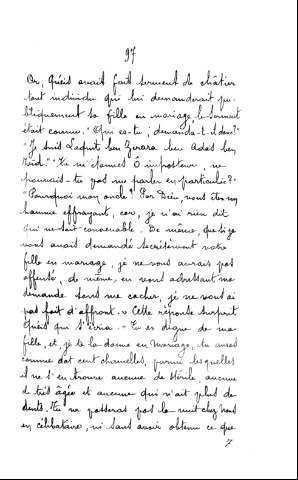 97
Or, Quéis avait fait serment de châtier
tout individu qui lui demanderait pu-
bliquement sa fille en mariage, le serment
était connu. "Qui es-tu, demanda-t-il donc?"
"Je suis Laquit ben Zorara ben Adas ben
Zéid." "Tu m'étonnes Ô imposteur, ne
pouvais-tu pas me parler en particulier?"
"Pourquoi mon oncle? Par Dieu, vous êtes un
homme effrayant, car, je n'ai rien dit
qui ne soit convenable. De même, que si je
vous avais demandé secrètement votre
fille en mariage, je ne vous aurais pas
offensé, de même, en vous adressant ma
demande sans me cacher, je ne vous ai
pas fait d'affront." Cette réponse surprit
Quéis qui s'écria. "Tu es digne de ma
fille, et, je te la donne en mariage, tu auras
comme dot cent chamelles, parmi lesquelles
il ne s'en trouve aucune de stérile, aucune
de très âgée et aucune qui n'ait plus de
dents. Tu ne passeras pas la nuit chez nous
en célibataire, ni sans avoir obtenu ce que
7